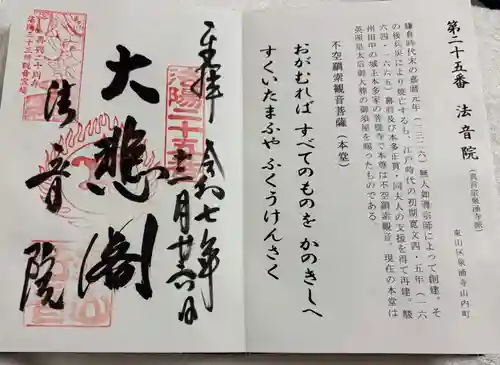 第二十五番　法音院
（真言宗泉涌寺派）
東山区泉涌寺山内町
鎌倉時代末の嘉暦元年（一三二六）無人如導宗師によって創建。そ
の後兵災により焼亡するも、江戸時代の初期寛文四・五年（一六
六四・一六六五）幕府及び本多正貫・同夫人の支援を得て再建。駿
州田中の城主本多家の菩提寺で本尊は不空羂索観音。現在の本堂は
英照皇太后御大葬の御須屋を賜ったものである。
不空羂索観音菩薩（本堂）
おがむれば　すべてのものを　かのきしへ
すくいたまふや　ふくうけんさく
奉拝　令和七年
十二月廿六日
洛陽二十五番
大悲閣
法音院